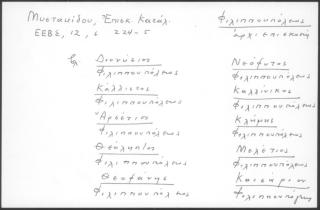 Μυστακίδου, Επισκ. Κατάλ.
ΕΕΒΣ, 12, 224-5
Φιλιππουπόλεως
ἀρχιεπισκοπὴ
Διονύσιος
Φιλιππουπόλεως
Κάλλιστος
Φιλιππουπόλεως
Ἀρσένιος
Φιλιππουπόλεως
Θεόληπτος
Φιλιππουπόλεως
Θεοφάνης
Φιλιππουπόλεως
Νεόφυτος
Φιλιππουπόλεως
Καλλίνικος
Φιλιππουπόλεως
Κλήμης
Φιλιππουπόλεως
Μελέτιος
Φιλιππουπόλεως
Καισάριος
Φιλιππουπόλεως